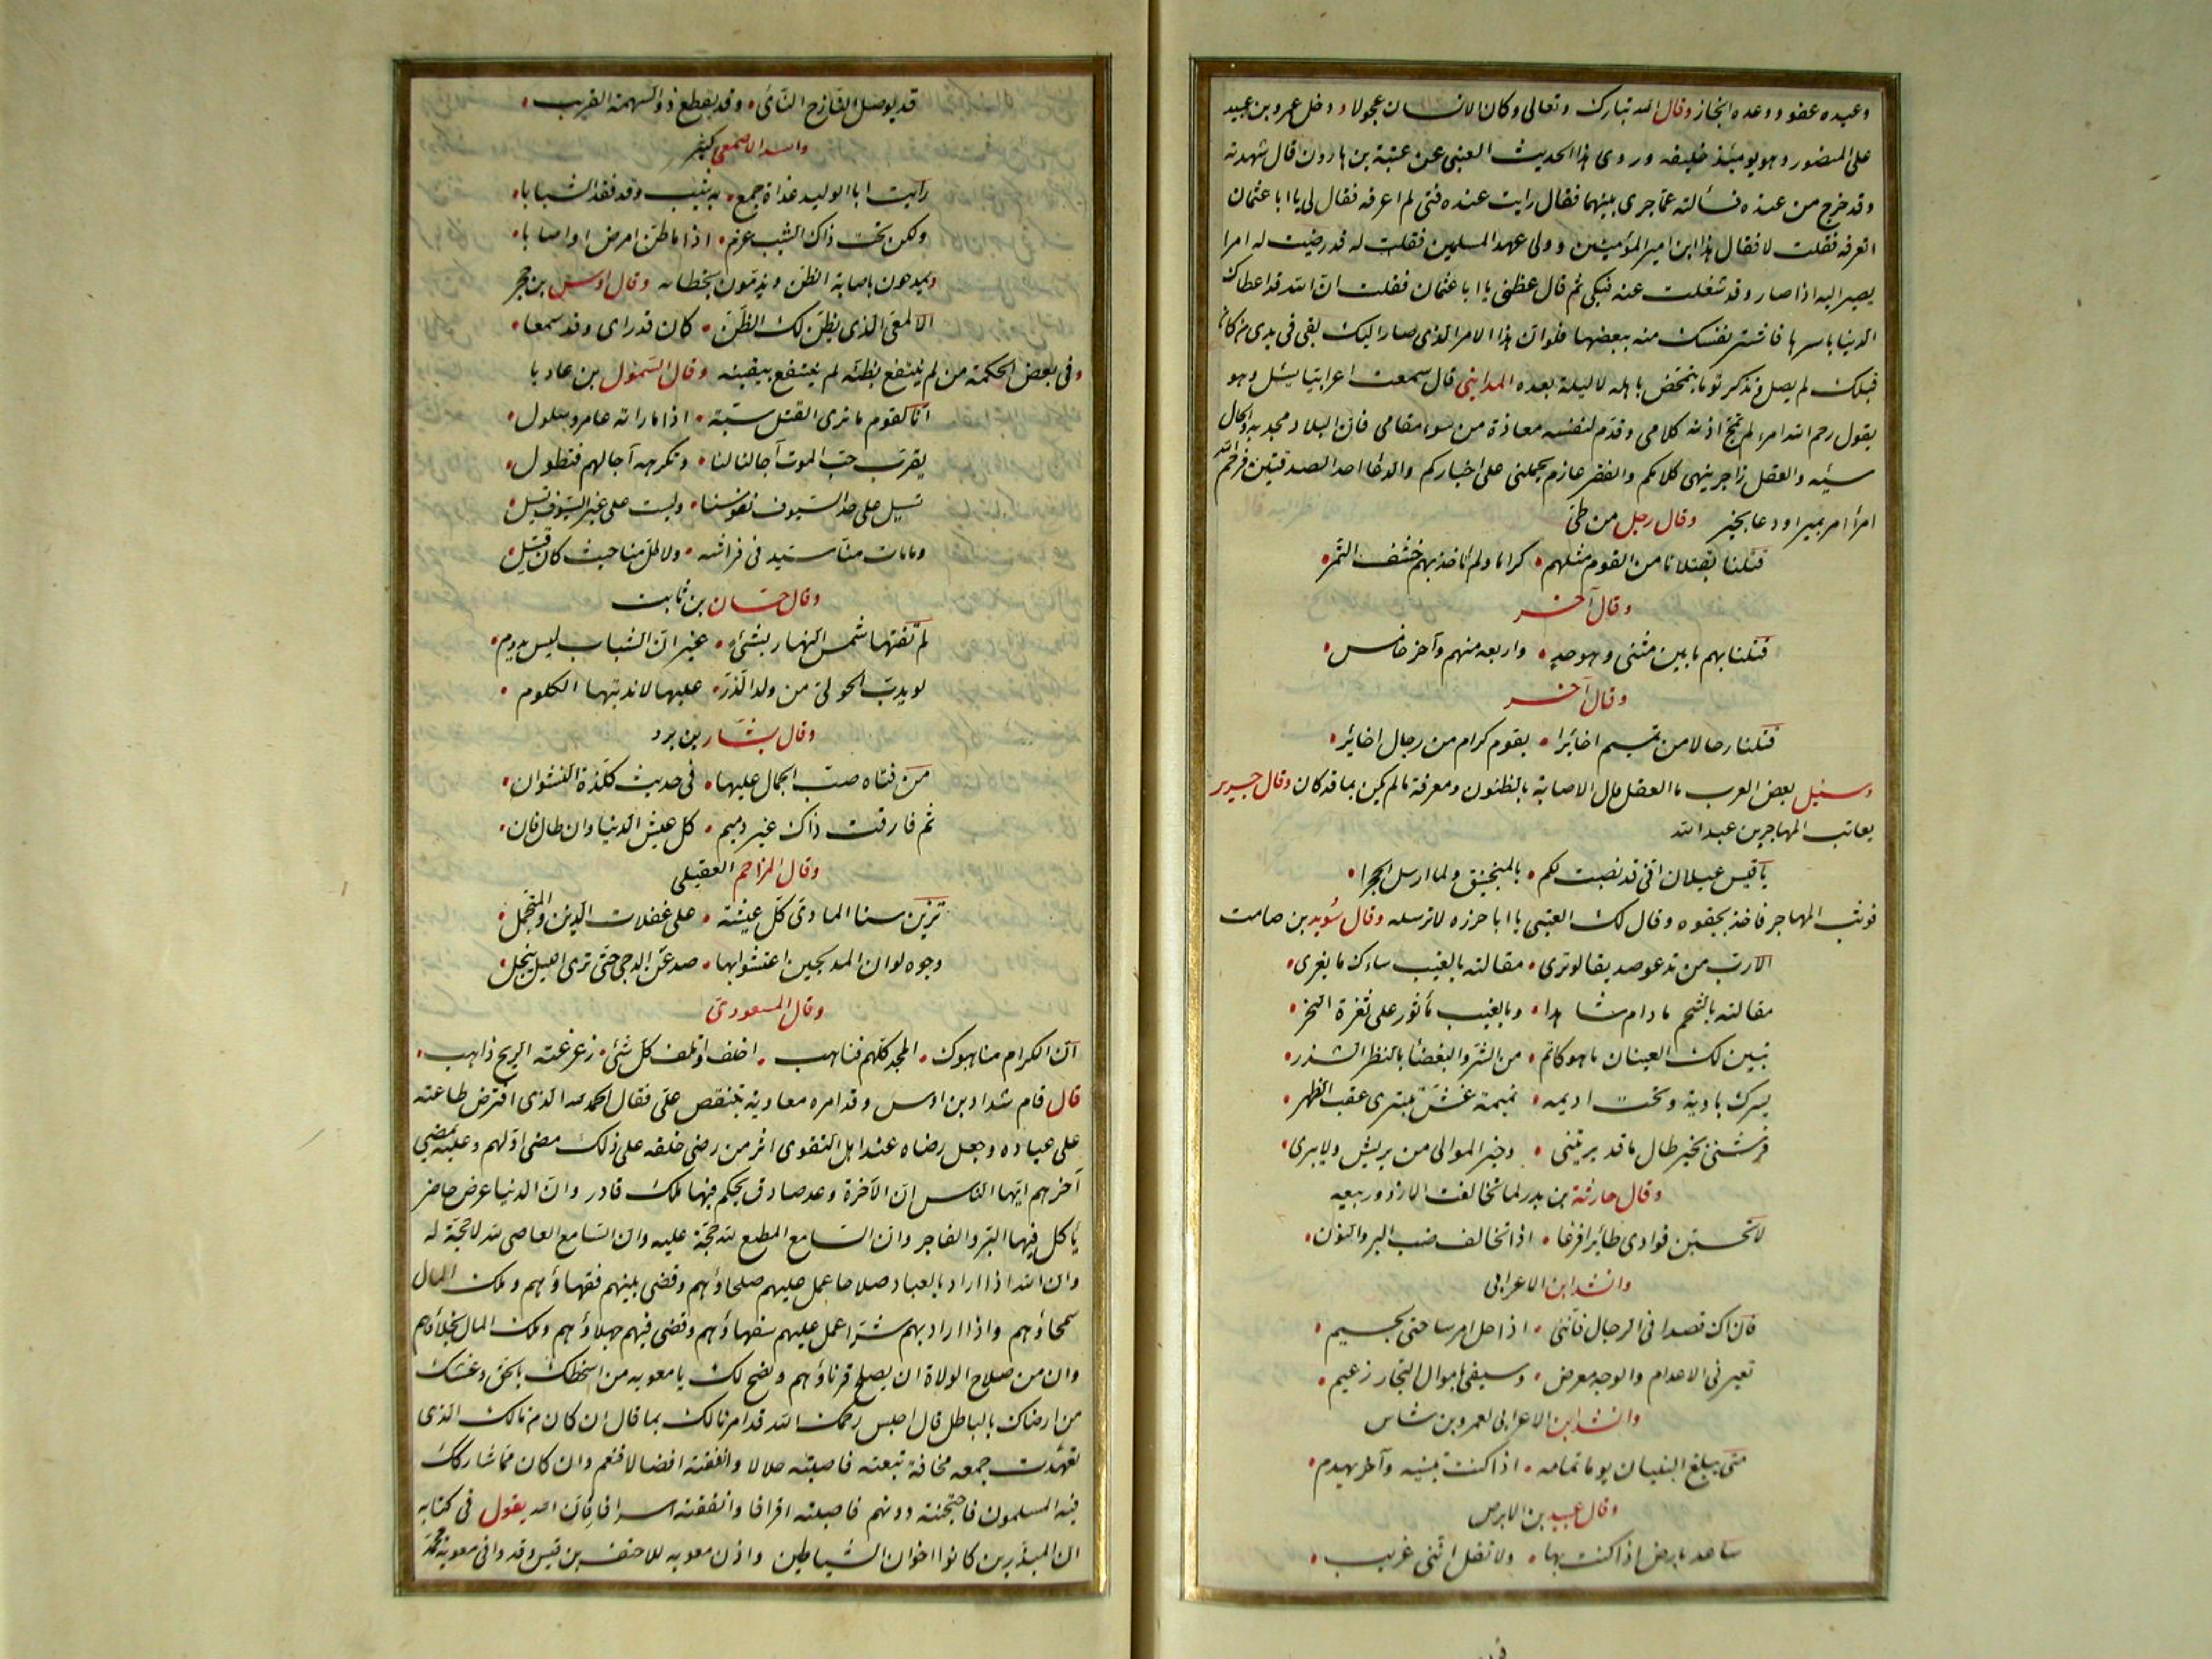 وعيده عفو ووعده انجاز وقال الله تبارك وتعالى وكان الانسان عجولا ودخل عمرو بن عبيد
على المنصور وهو يومئذ خليفه وروى هذا الحديث العتبى عن عتبة بن هارون قال شهدته
وقد خرج من عنده فسألته عما جرى بينهما فقال رايت عنده فتى لم اعرفه فقال لى يا ابا عثمان
اتعرفه فقلت لا فقال هذا ابن امير المؤمنين وولى عهد المسلمين فقلت له قد رضيت له امرا
يصير اليه اذا صار وقد شغلت عنه فبكى ثم قال عظنى يا ابا عثمان فقلت ان الله قد اعطاك
الدنيا باسرها فاشتر نفسك منه ببعضها فلو ان هذا الامر الذى صار اليك بقى فى يدى من كان
قبلك لم يصل وتذكر يوما يتمخض باهله لا ليلة بعده المداينى قال سمعت اعرابيا يسئل وهو
يقول رحم الله امرء لم تمج اذنه كلامى وقدم لنفسه معاذة من سوء مقامى فان البلاد مجدبه والحال
سيئه والعقل زاجر ينهى كلامكم والفقر عازم يحملنى على اخباركم والدعا احد الصدقتين فرحم الله
امرأ امر بمير او دعا بخير وقال رجل من طى
قتلنا بقتلانا من القوم مثلهم • كراما ولم ناخذ بهم خشف التمر
وقال آخر
قتلنا بهم ما بين مثنى وموحد • واربعه منهم وآخر خامس
وقال آخر
قتلنا رجالا من تميم اخائرا • بقوم كرام من رجال اخائر
وسئيل بعض العرب ما العقل قال الاصابة بالظنون ومعرفة ما لم يكن بما قد كان وقال جرير
يعاتب المهاجر بن عبد الله
يا قيس عيلان انى قد نصبت لكم • بالمنجنيق ولما ارسل الحجرا
فوثب المهاجر فاخذ بحقوه وقال لك العتبى يا ابا حرزه لا ترسله وقال سويد بن صامت
الا رب من تدعو صديقا لو ترى • مقالته بالغيب ساءك ما يفرى
مقالته بالشحم ما دام شاهدا • وبالغيب مأثور على ثغرة النحر
تبين لك العينان ما هو كاتم • من الشر والبغضأ بالنظر الشذر
يسرك باديه وتحت اديمه • نميمة غش تبترى عقب الظهر
فرشنى بخير طال ما قد بريتنى • وخير الموالى من يريش ولا يبرى
وقال حارثة بن بدر لما تخالفت الازد وربيعه
لا تحسبن فوادى طائرا فزعا • اذا تخالف ضب البر والنون
وانشد ابن الاعرابى
فان اك قصدا فى الرجال فاننى • اذا حل امر ساحتى لجسيم
تعيرنى الاعدام والوجه معرض • وسيفى باموال التجار زعيم
وانشد ابن الاعرابى لعمرو بن شاس
متى يبلغ البنيان يوما تمامه • اذا كنت تبنيه وآخر يهدم
وقال عبيد بن الابرص
ساعد بارض اذا كنت بها • ولا تقل اننى غريب
قد يوصل النازح النائى • وقد يقطع ذو السهمة القريب
وانشد الاصمعى لكثير
رايت ابا الوليد غداة جمع • به شيب وقد فقد الشبابا
ولكن تحت ذاك الشيب عزم • اذا ما ظن امرض او اصابا
ويمدحون باصابة الظن ويذمون بخطائه وقال اوس بن حجر
الالمعى الذى يظن لك الظن • كان قد راى وقد سمعا
وفى بعض الحكمة من لم ينتفع بظنه لم ينتفع بيقينه وقال السمؤل بن عاديا
انا لقوم ما نرى القتل سبة • اذا ما راته عامر وسلول
يقرب حب الموت آجالنا لنا • وتكرهه آجالهم فتطول
تسيل على حد السيوف نفوسنا • وليست على غير السيوف تسيل
وما مات منا سيد فى فراشه • ولا طل منا حيث كان قتيل
وقال حسان بن ثابت
لم تفتها شمس النهار بشئ • غير ان الشباب ليس يدوم
لو يدب الحولى من ولد الذر • عليها لاندبتها الكلوم
وقال بشار بن برد
من فتاه صب الجمال عليها • فى حديث كلذة النشوان
ثم فارقت ذاك غير ذميم • كل عيش الدنيا وان طال فان
وقال المزاحم العقيلى
تزين سنا الماوى كل عشية • على غفلات الزين والمتجمل
وجوه لو ان المدلجين اعتشوا بها • صدعن الدجى حتى ترى الليل ينجلى
وقال المسعودى
ان الكرام مناهبوك • المجد كلهم فناهب • اخلف واتلف كل شئ • زعزعته الريح ذاهب
قال قام شداد بن اوس وقد امره معاوية بتنقص على فقال الحمد لله الذى افترض طاعته
على عباده وجعل رضاه عند اهل التقوى اثر من رضى خلقه على ذلك مضى اولهم وعليه يمضى
آخرهم ايها الناس ان الآخرة وعد صادق يحكم فيها ملك قادر وان الدنيا عرض حاضر
يأكل فيها البر والفاجر وان السامع المطيع لله حجة عليه وان السامع العاصى لله لا حجة له
وان الله اذا اراد بالعباد صلاحا عمل عليهم صلحاؤهم وقضى بينهم فقهاؤهم وملك المال
سمحاؤهم واذا اراد بهم شرا عمل عليهم سفهاؤهم وقضى فيهم جهلاؤهم وملك المال بخلاؤهم
وان من صلاح الولاة ان يصلح قرناؤهم ونصح لك يا معويه من اسخطك بالحق وغشك
من ارضاك بالباطل قال اجلس رحمك الله قد امرنا لك بما قال ان كان من مالك الذى
تعهدت جمعه مخافة تبعته فاصبته حلالا وانفقته افضالا فنعم وان كان مما شاركك
فيه المسلمون فاحتجنته دونهم فاصبته اقرافا وانفقته اسرافا فان الله يقول فى كتابه
ان المبذرين كانوا اخوان الشياطين واذن معويه للاحنف بن قيس وقد وافى معوية محمد